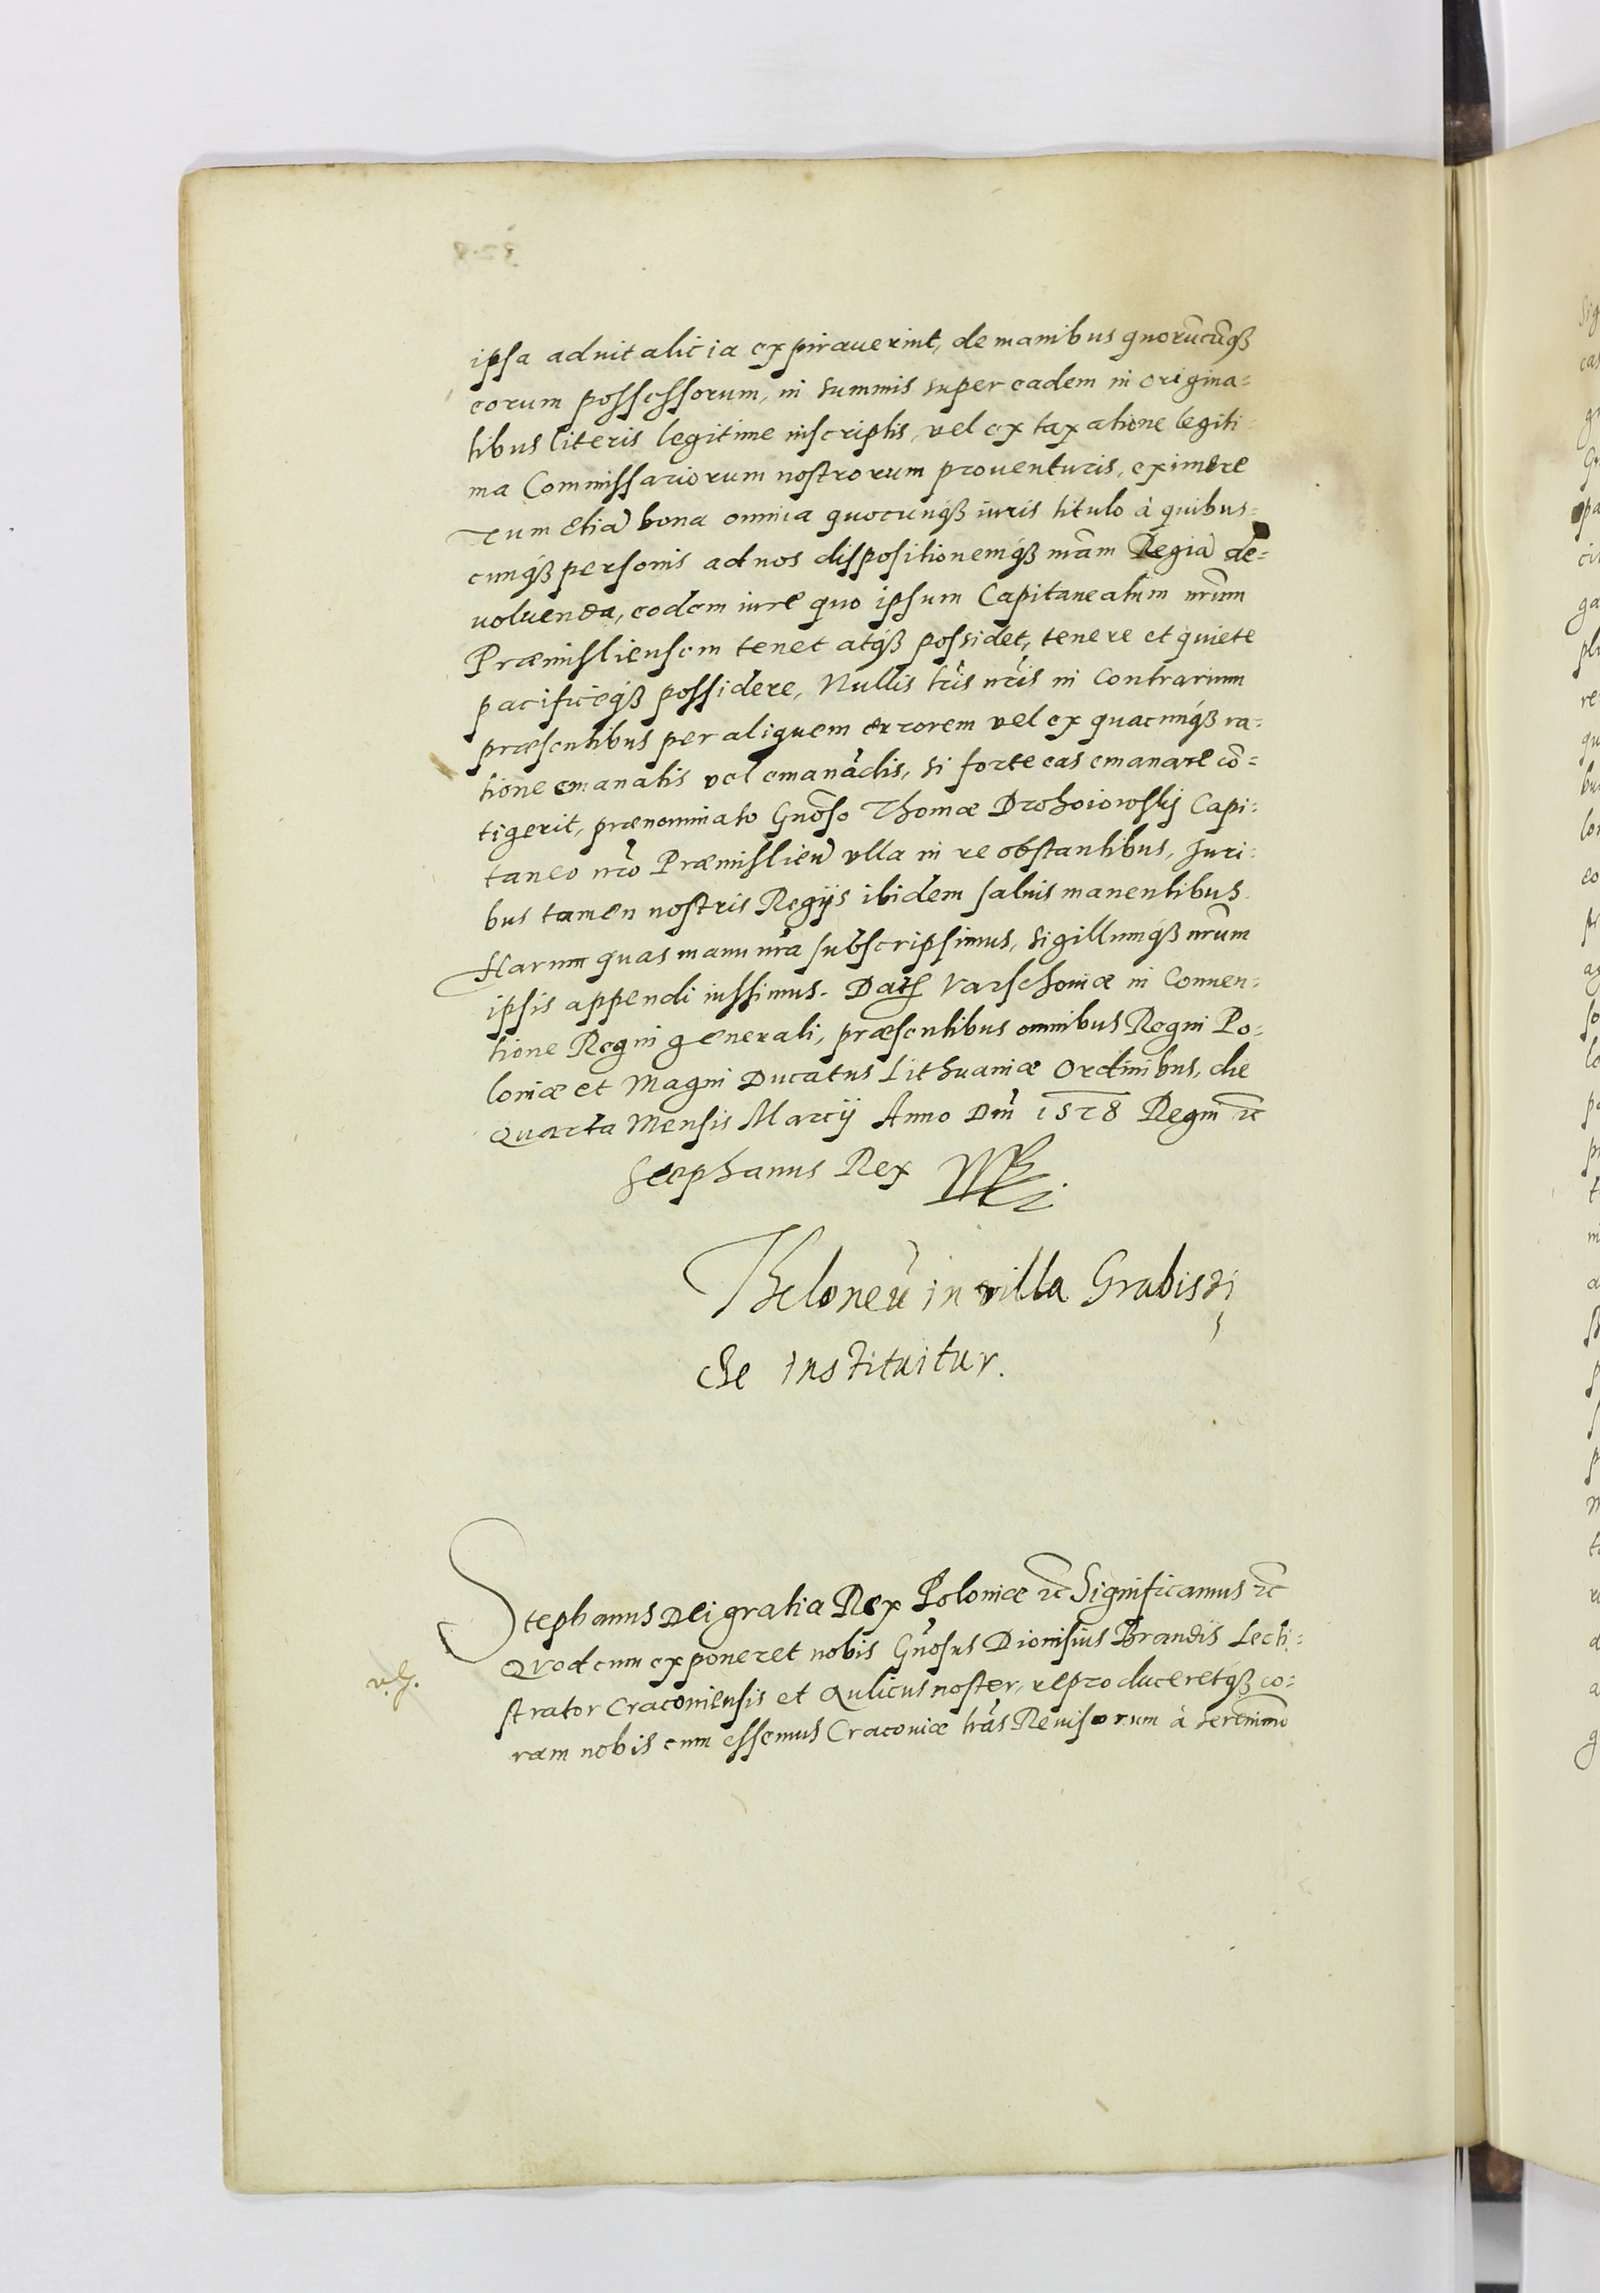 ipsa aduitalicia expirauerint, de manibus quorūcūqȝ
eorum possessorum, in summis super eadem in origina=
libus literis legitime inscriptis, vel ex taxatione legiti=
ma Commissariorum nostrorum prouenturis, eximere
Tum etiā bona omnia quocunqȝ iuris titulo à quibus=
cunqȝ personis ad nos dispositionemqȝ nr̄am Regiā de=
uoluenda, eodem iure quo ipsum Capitaneatum nr̄um
Præmisliensem tenet atqȝ possidet, tenere et quiete
pacificeqȝ possidere, Nullis lr̄is nr̄is in contrarium
præsentibus per aliquem errorem vel ex quacunqȝ ra=
tione emanatis vel emanādis, si forte eas emanare cō=
tigerit, prænominato Gnōso Thomæ Drohoiowskij Capi=
taneo nr̄o Præmislieñ vlla in re obstantibus, Juri=
bus tamen nostris Regijs ibidem saluis manentibus.
Harum quas manu nr̄a subscripsimus, sigillumqȝ nr̄um
ipsis appendi iussimus. Dat Varschouiæ in Conuen=
tione Regni generali, præsentibus omnibus Regni Po=
loniæ et Magni Ducatus Lithuaniæ Ordinibus, die
Quarta Mensis Marcij Anno Dn̄i 1578 Regni ꝛc
Stephanus Rex
Theloneū in villa Grabisti
che instituitur.
Stephanus Dei gratia Rex Poloniæ ꝛc Significamus ꝛc
Quod cum exponeret nobis Gn̄osus Dionisius Brandis Lecti=
strator Cracouiensis et Aulicus noster, reproduceretqȝ co=
ram nobis cum essemus Cracouiæ lr̄as Reuisorum à Serenimo